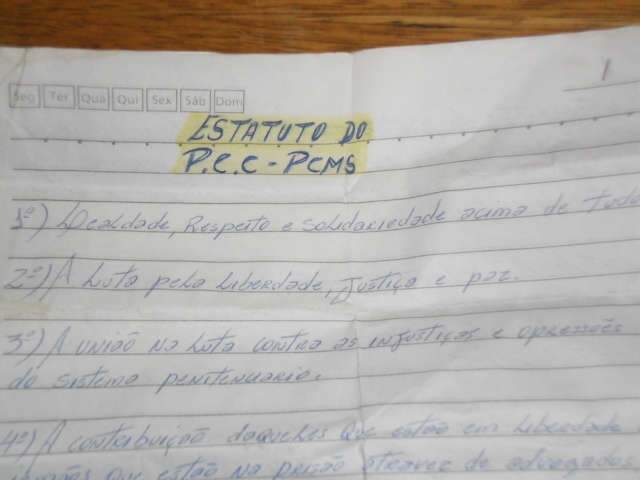 1
Seg Ter Qua Qui Sex Sáb Dom
ESTATUTO DO
P.C.C - PCMS
1º) Lealdade, Respeito e solidariedade acima de tudo
2º) A Luta pela Liberdade, Justiça e paz.
3º) A união na Luta contra as injustiças e opressões
do sistema penitenciario.
4º) A contribuição daqueles que estão em Liberdade
irmãos que estão na prisão atravez de advogados